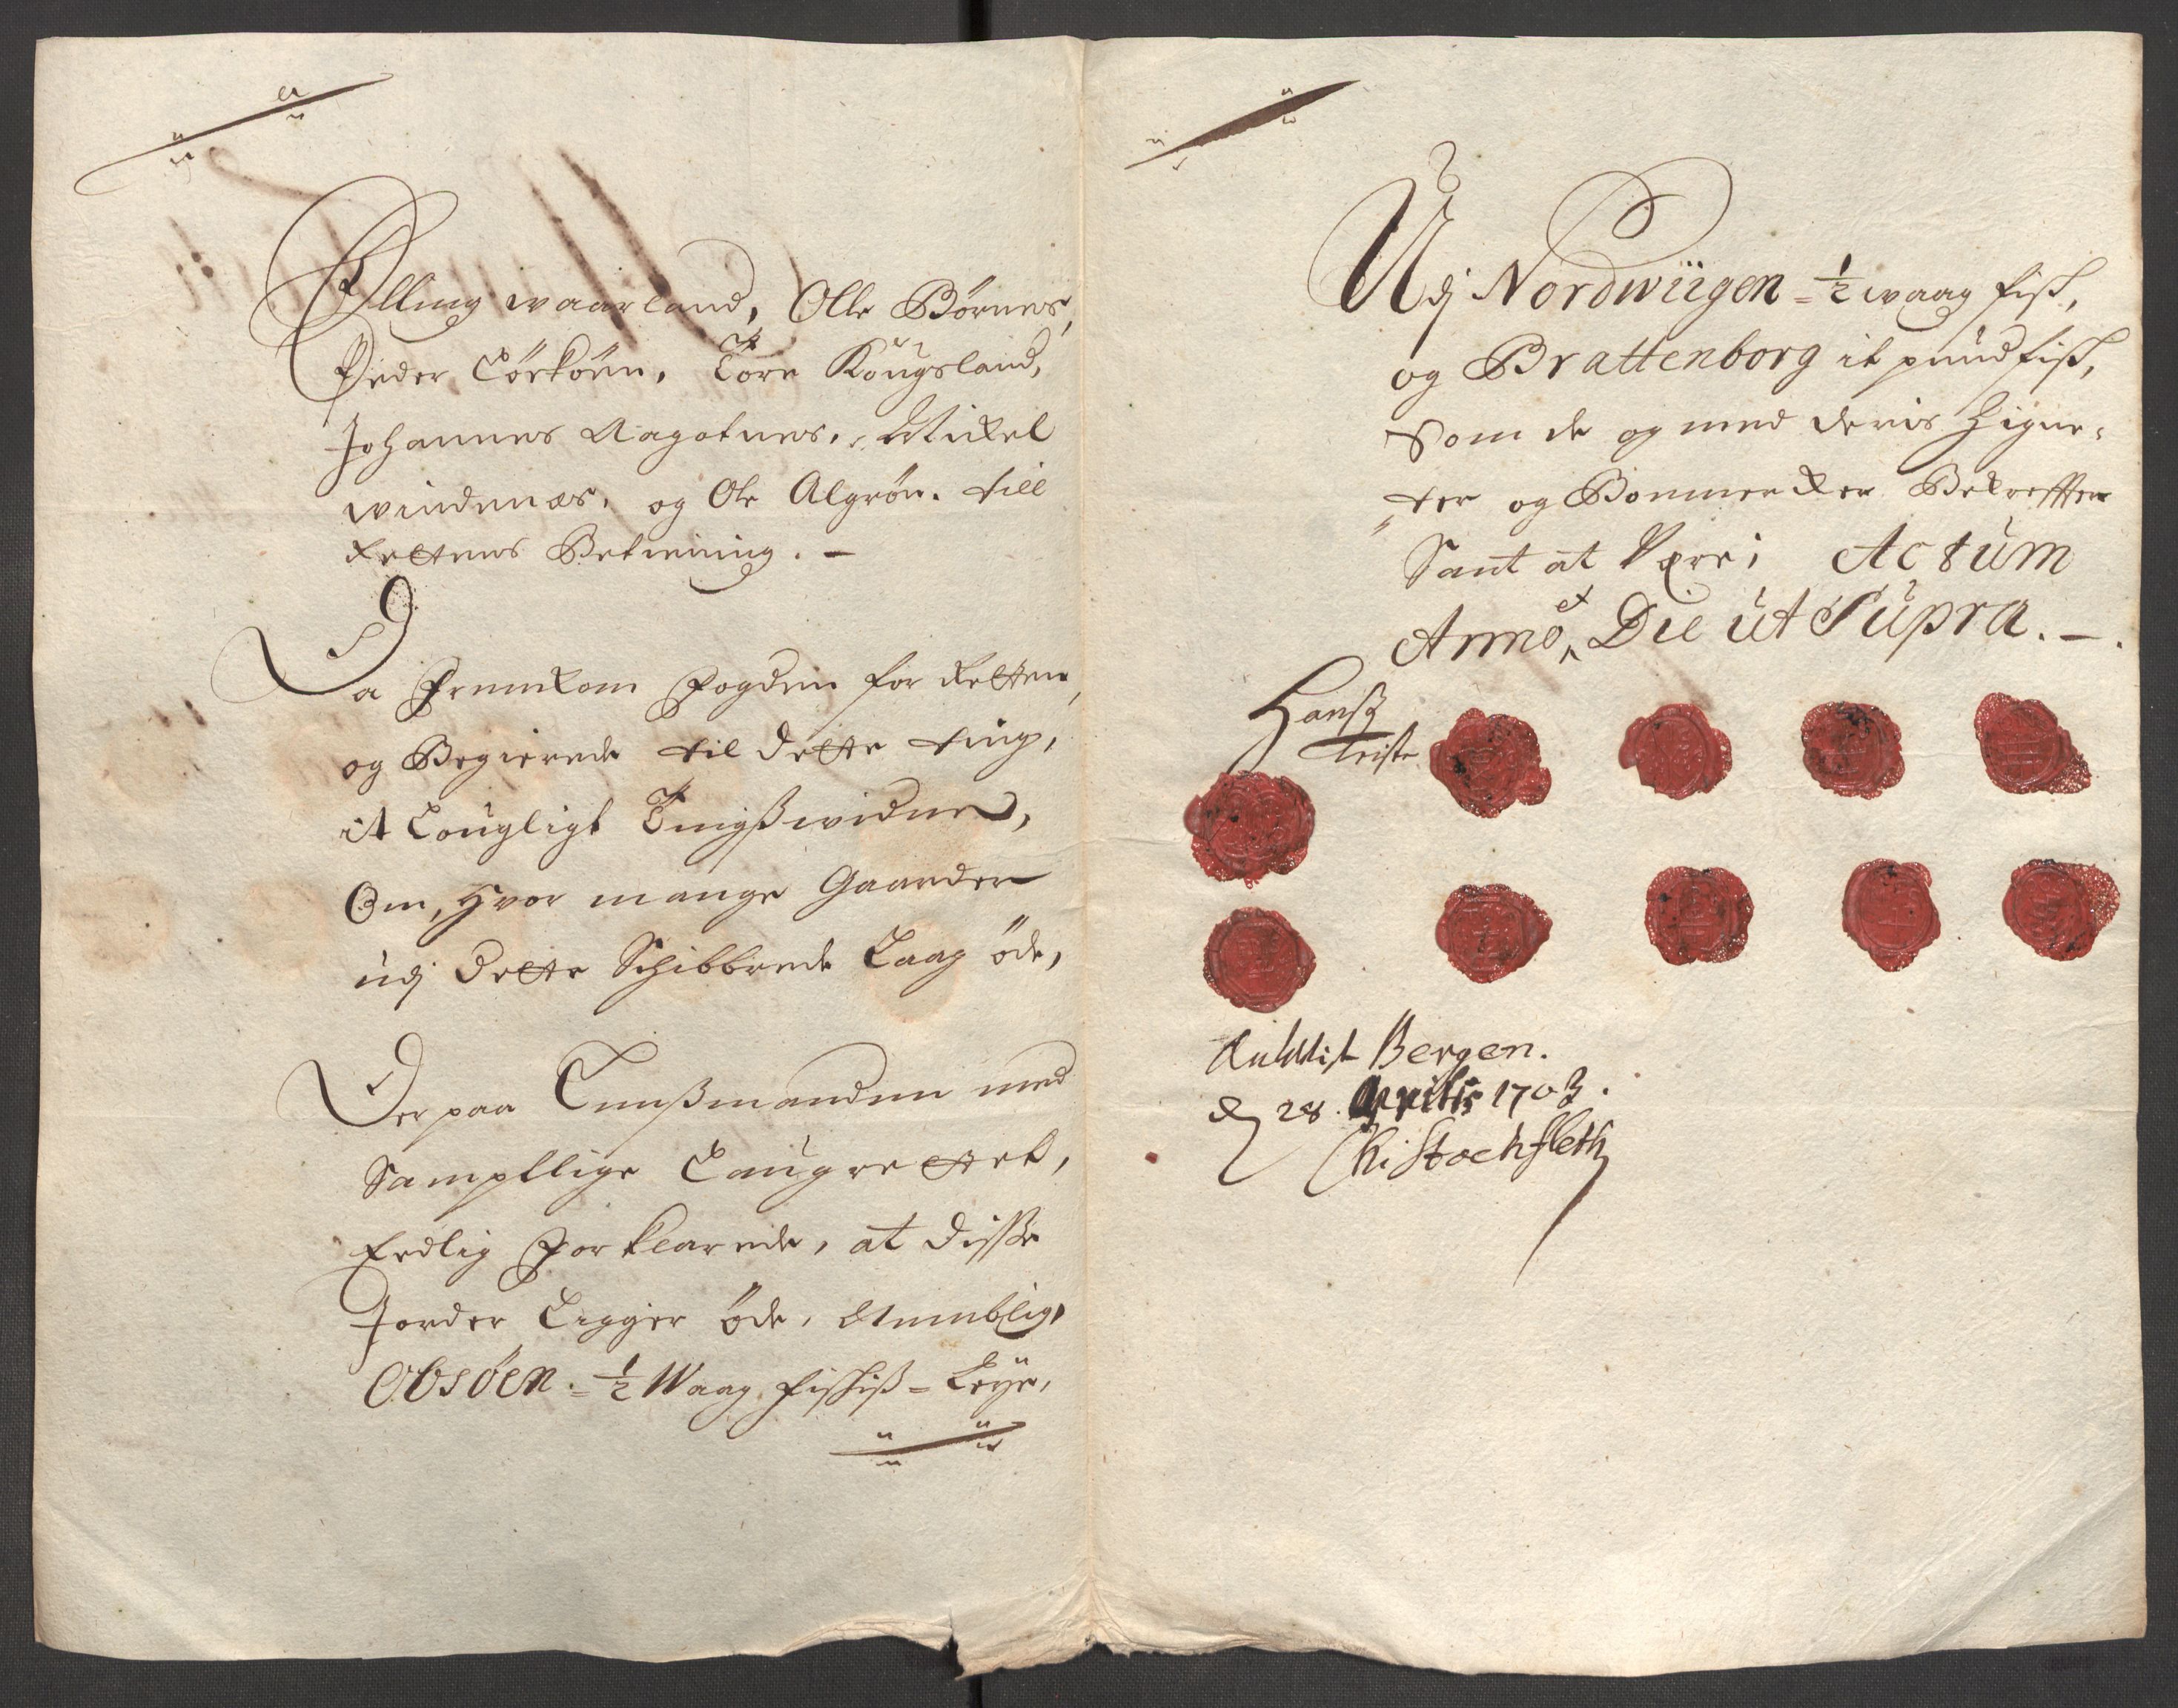 Elling waarland, Olle Børnes,
Peder Lørkøen, Tore Kougsland,
Johannes Aagotnes, Mickel
windenæs, og Ole Algrøn. till
Rettens Betiening. –
Da Fremkom Fogden for Retten,
og Begierede til dette ting,
it Lougligt Tingßwidne,
Om, Hvor mange Gaarder
udj dette Schibbrede Laag øde,
Der paa Lennßmanden med
Samptlige Laugrettet,
Endlig Forklarede, at disse
Jorder Ligger øde, Nemblig,
Obsøen = 1/2 Waag fischis = Leye,
Udj Nordwiigen = 1/2 waag fisk,
og Brattenborg it pund fisk,
Som de og med deris Zigne-
ter og Bommerker Bekreffter
Sant at være; Actum
Anno et Die ut Supra. –.
Hanß
Teiste
Bergen.
d 28. Aprilis 1703.
Chr Stockfleth